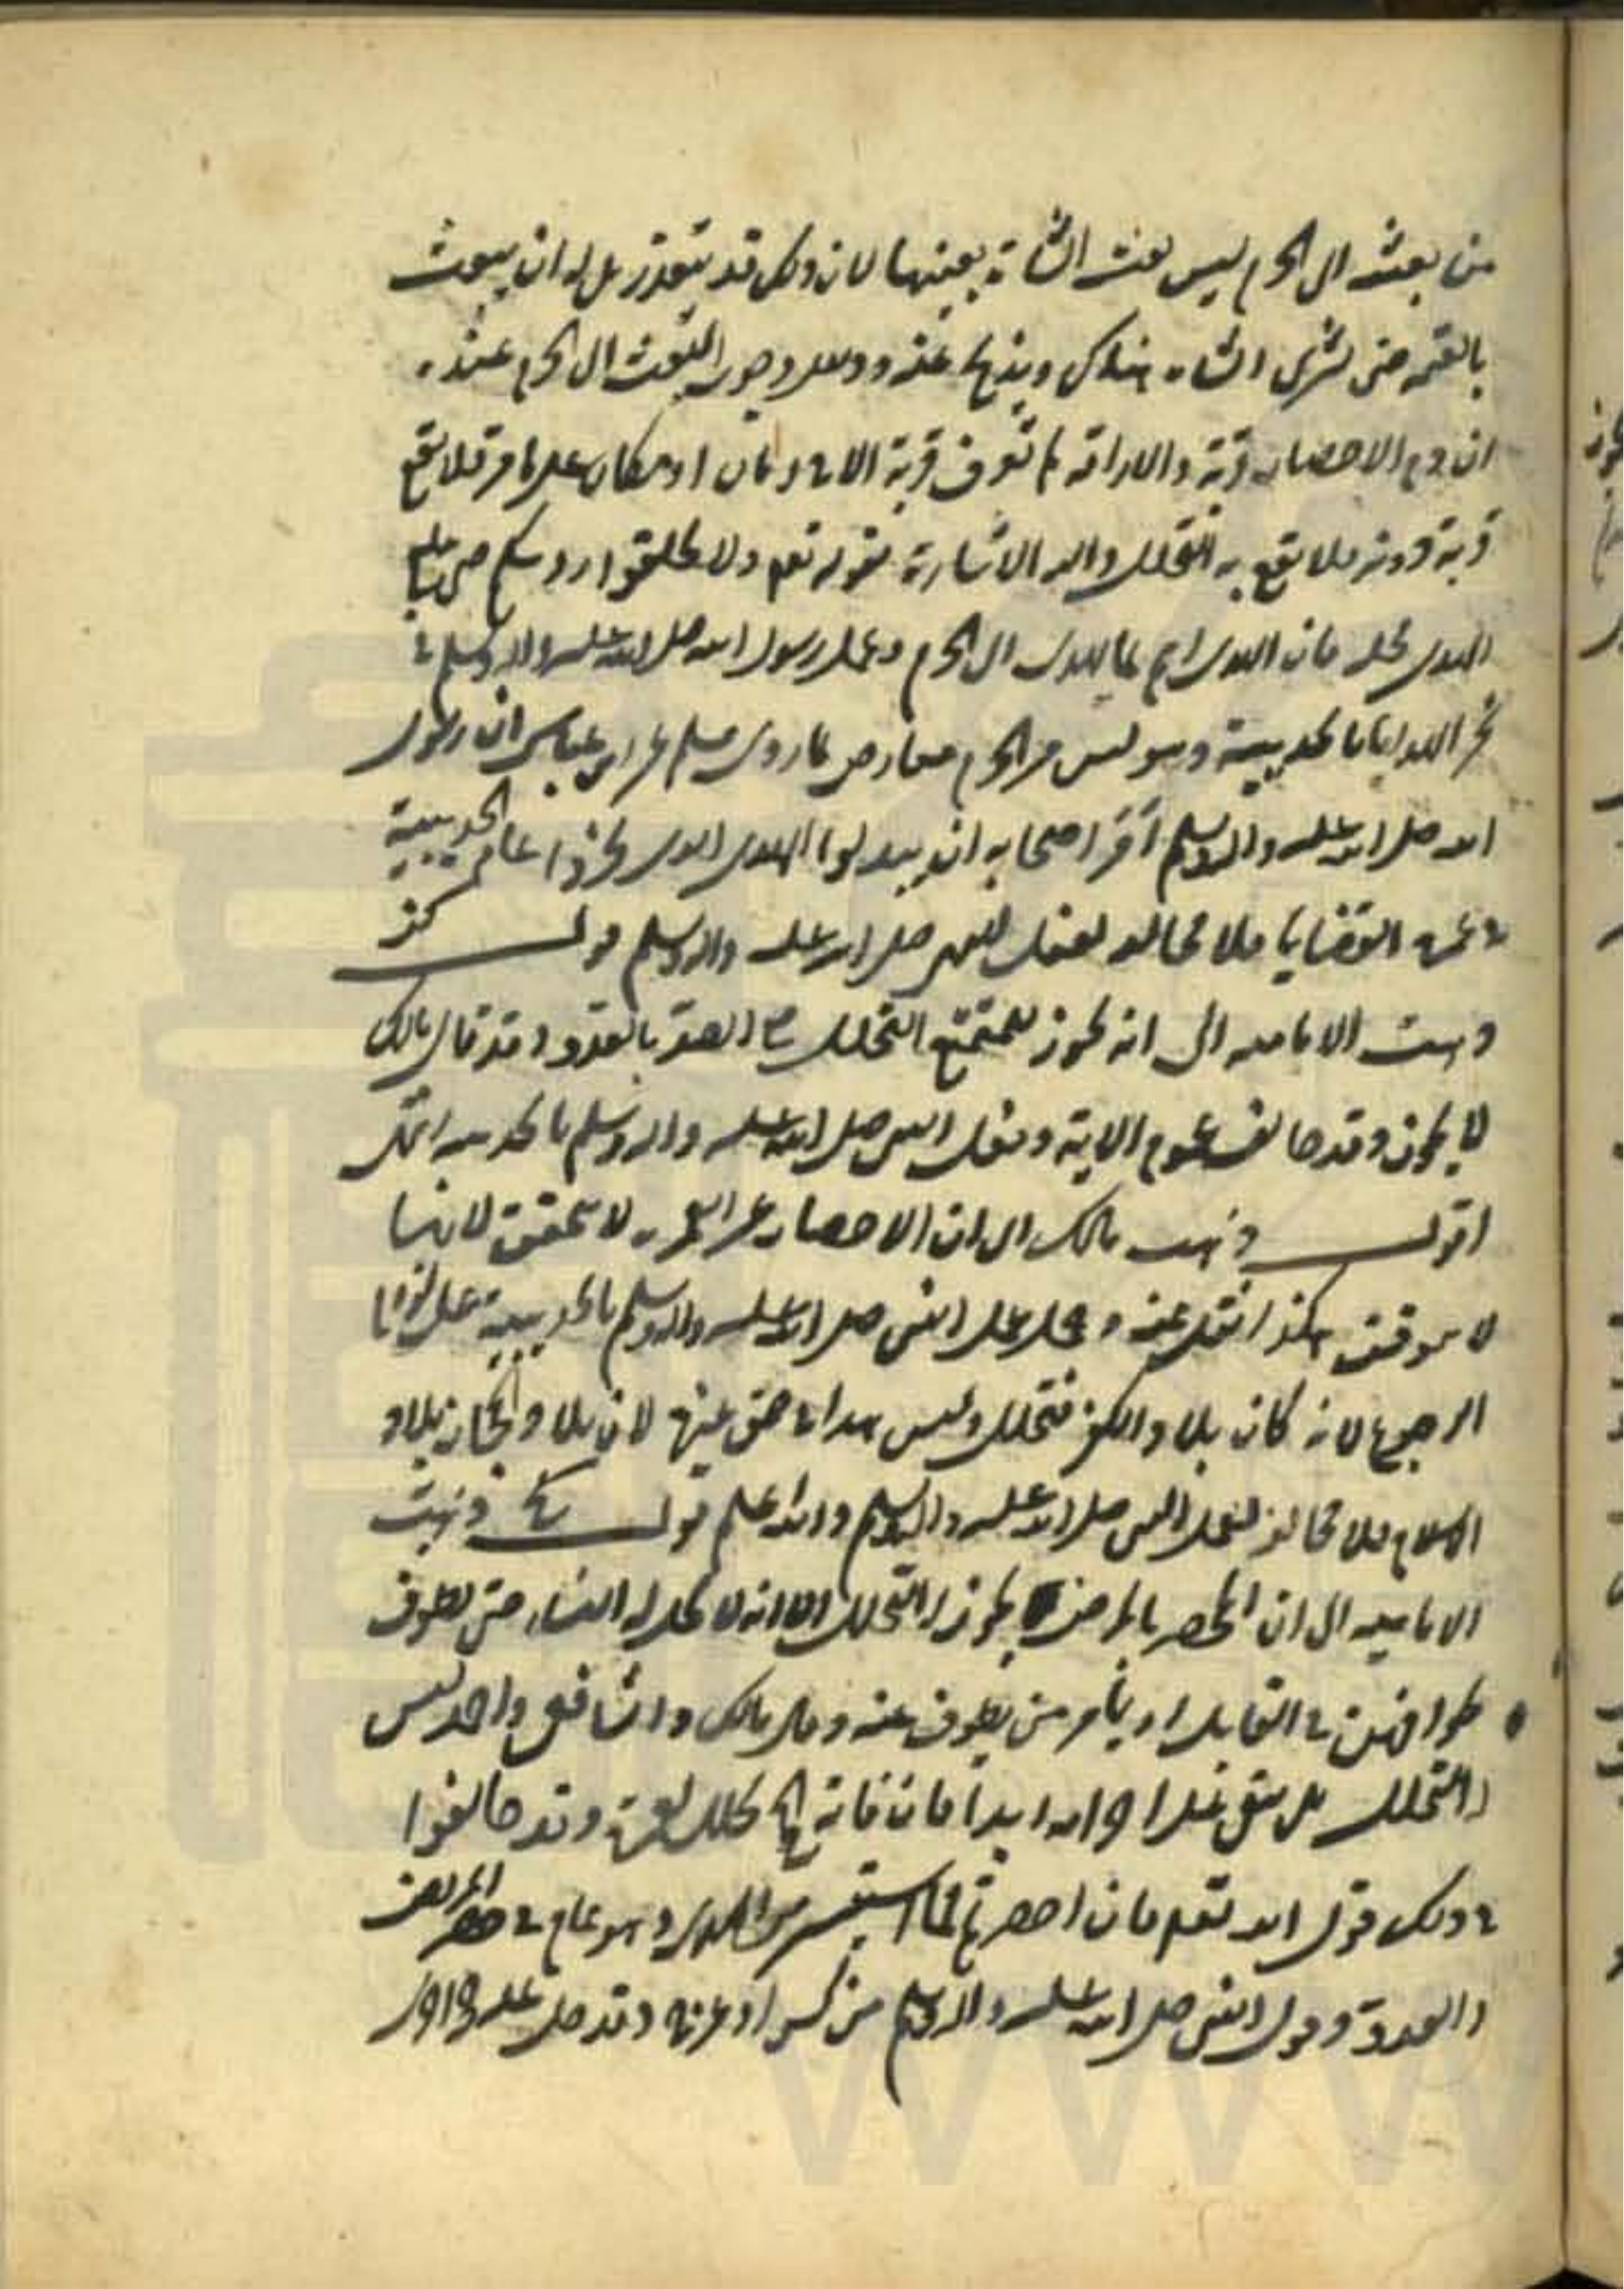 من بعث الى الحرم ليس بعث الشاة بعينها لان ذلك قد يتعذر بل له ان يبعث
بالقيمة حتى تشرى الشاة هناك ويذبح عنه ودليل وجوب البعث الى الحرم عنده
ان دم الاحصار قربة والاراقة لم تعرف قربة الا في زمان او مكان على ما مر فلا تقع
قربة دونه فلا يقع به التحلل واليه الاشارة بقوله تعم ولا تحلقوا رؤسكم حتى يبلغ
الهدى محله فان الهدى اسم لما يهدى الى الحرم وعمل رسول الله صلى الله عليه واله وسلم في
نحر الهدايا بالحديبية وهو ليس من الحرم معارض بما روى مسلم عن ابن عباس ان رسول
الله صلى الله عليه واله وسلم امر اصحابه ان يبدلوا الهدى الذى نحروا عام الحديبية
في عمرة القضايا فلا مخالفة لفعل النبى صلى الله عليه واله وسلم قوله كز
ذهبت الامامية الى انه يجوز للمتمتع التحلل مع الصد بالعدو وقد قال مالك
لا يجوز وقد خالف عموم الاية وفعل النبى صلى الله عليه واله وسلم بالحديبية انتهى
اقول ذهب مالك الى ان الاحصار عن العمرة لا يتحقق لانها
لا توقت هكذا نقل عنه وحمل عمل النبى صلى الله عليه واله وسلم بالحديبية على
الرجوع لانه كان بلاد الكفر فتحلل وليس هذا في حق غيره لان بلاد الحجاز بلاد
الاسلام فلا مخالفة لفعل النبى صلى الله عليه واله وسلم والله اعلم قوله كح ذهبت
الامامية الى ان المحصر بالمرض يجوز له التحلل الا انه لا يحل له النساء حتى يطوف
طوافهن في القابل او يأمر من يطوف عنه وقال مالك والشافعى واحمد ليس
له التحلل بل يبقى على احرامه ابدا فان فاته الحج تحلل بعمرة وقد خالفوا
في ذلك قول الله تعم فان احصرتم فما استيسر من الهدى وهو عام في حصر المرض
والعدو وقول النبى صلى الله عليه واله وسلم من كسر او عرج فقد حل وعليه